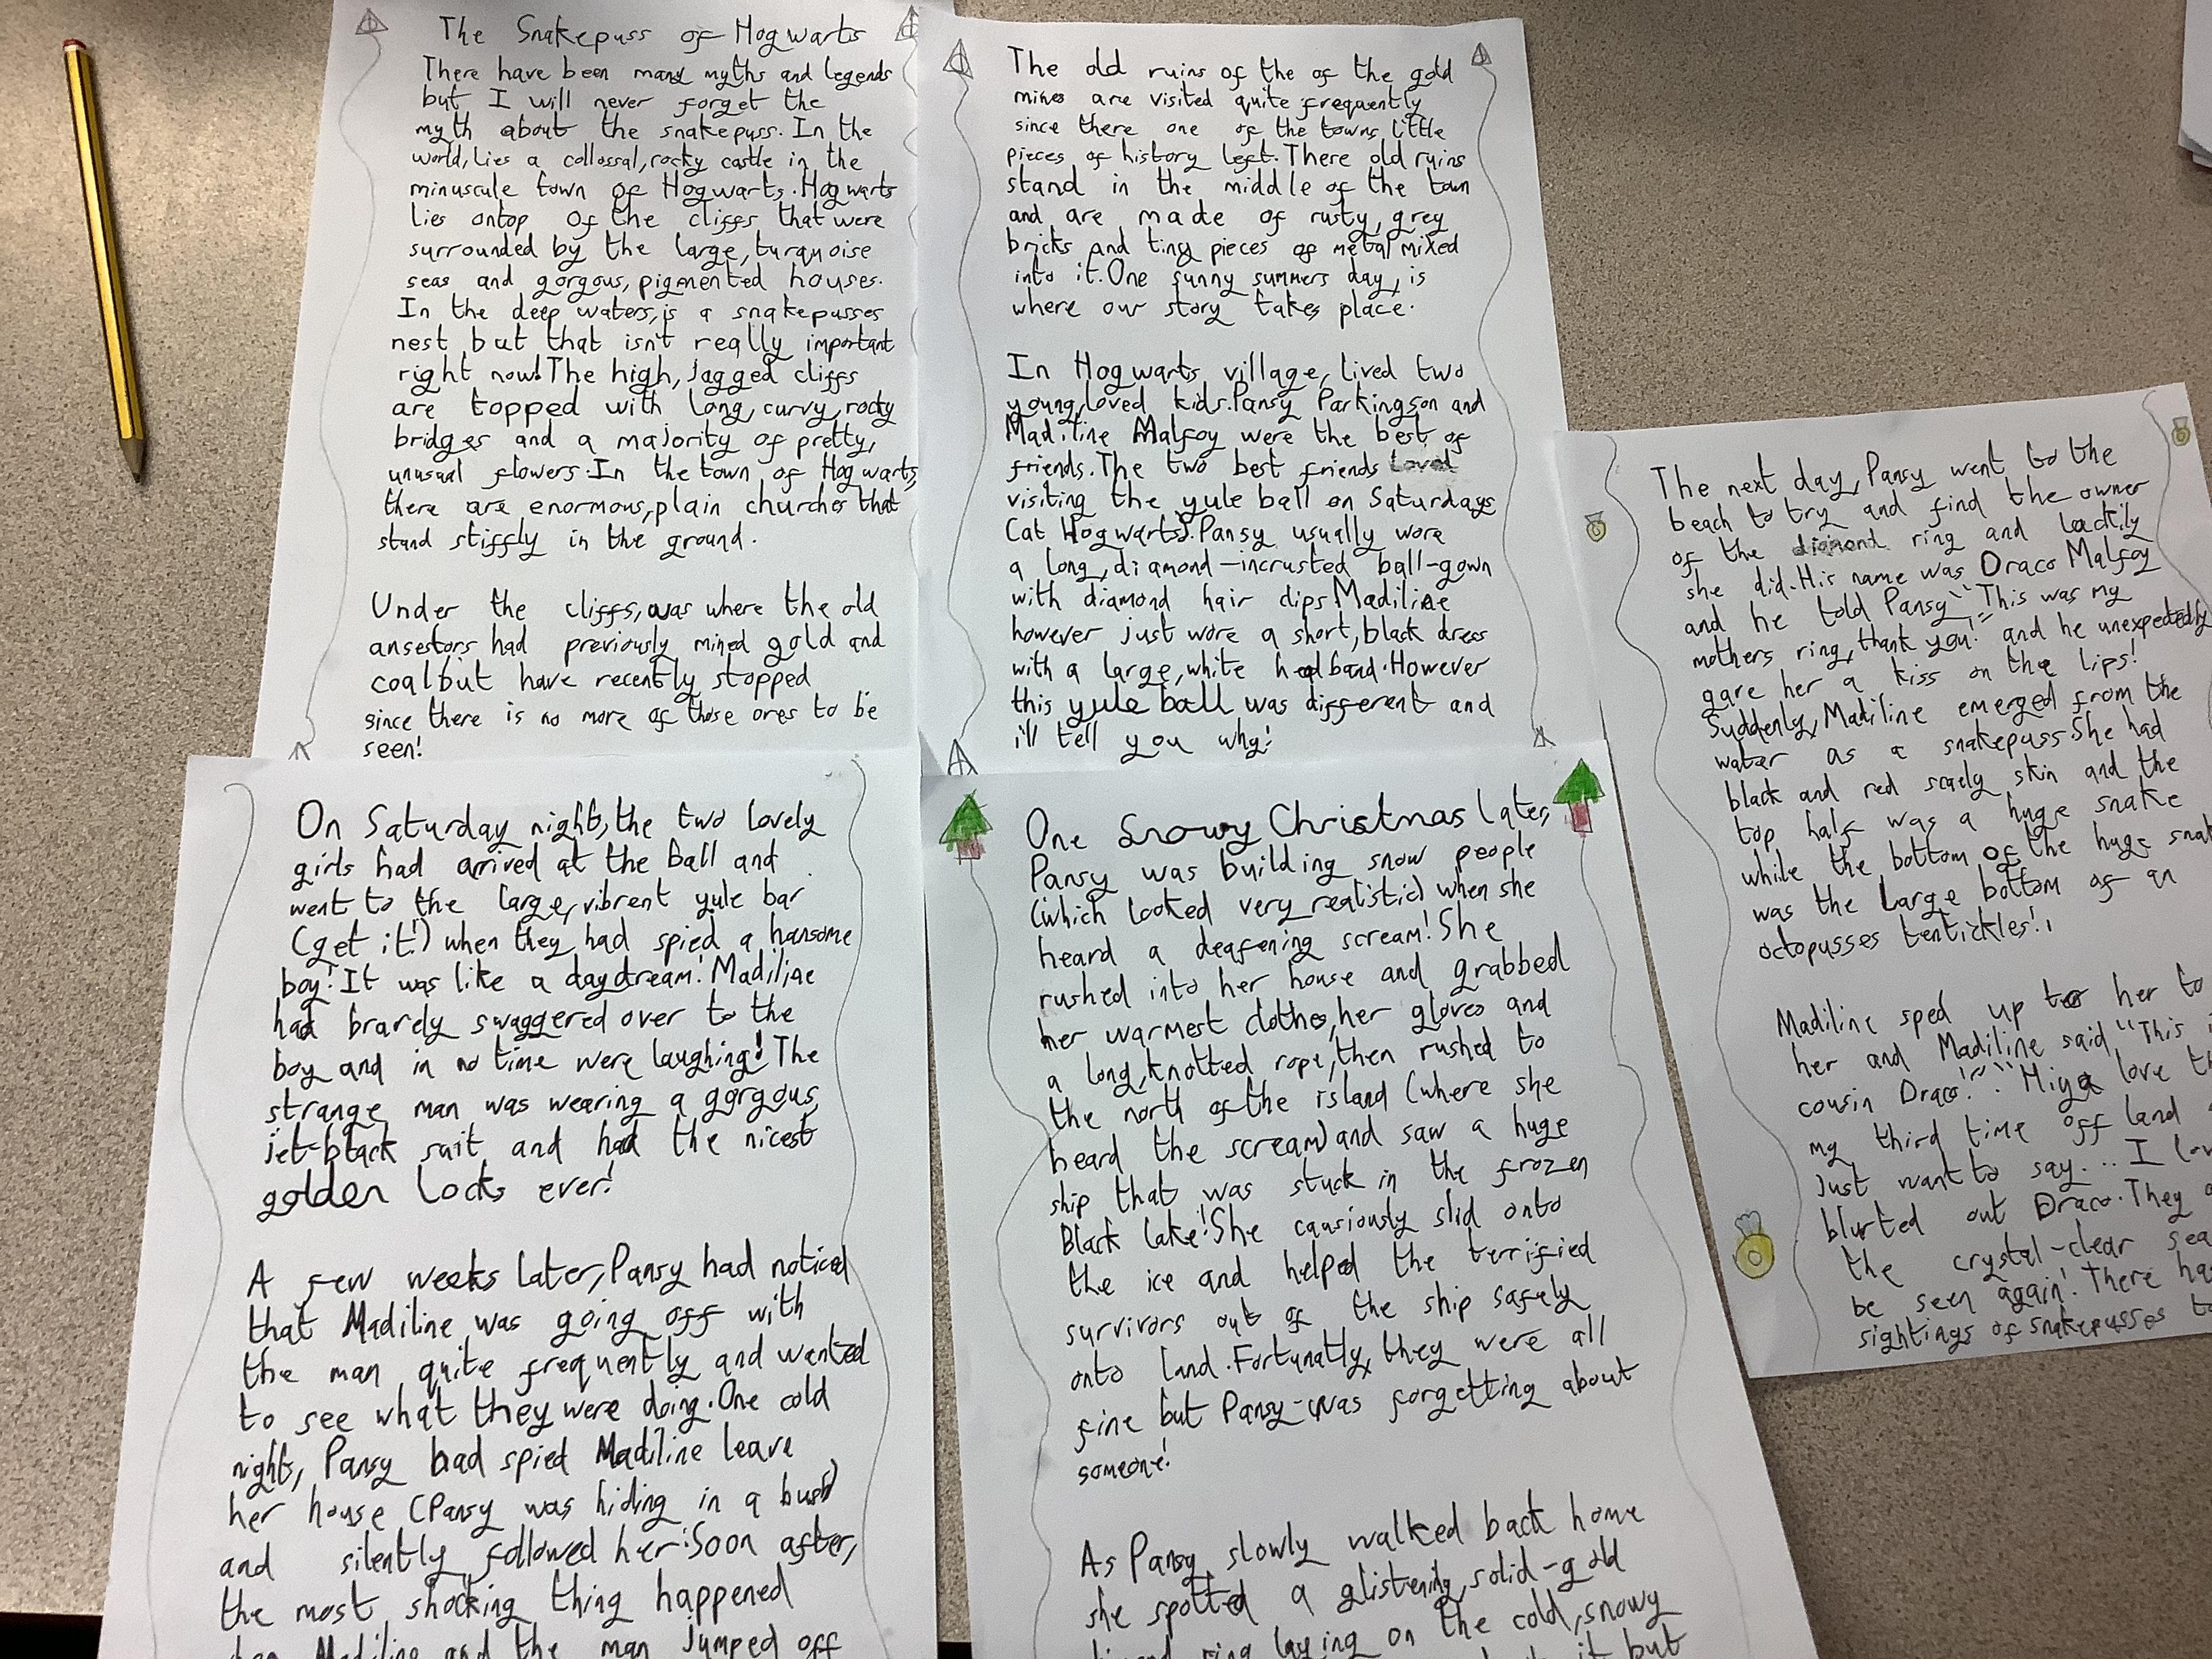 The Snakepuss of Hogwarts
There have been many myths and legends
but I will never forget the
myth about the snakepuss. In the
world, lies a collossal, rocky castle in the
minuscule town of Hogwarts. Hogwarts
lies ontop of the cliffs that were
surrounded by the large, turquoise
seas and gorgous, pigmented houses.
In the deep waters, is a snakepusses
nest but that isn't really important
right now! The high, jagged cliffs
are topped with long, curvy, rocky
bridges and a majority of pretty,
unusual flowers. In the town of Hogwarts,
there are enormous, plain churches that
stand stiffly in the ground.
Under the cliffs, was where the old
ansestors had previously mined gold and
coal but have recently stopped
since there is no more of those ores to be
seen!
The old ruins of the of the gold
mines are visited quite frequently
since there one of the towns little
pieces of history left. There old ruins
stand in the middle of the town
and are made of rusty, grey
bricks and tiny pieces of metal mixed
into it. One sunny summers day, is
where our story takes place.
In Hogwarts village, lived two
young, loved kids. Pansy Parkingson and
Madiline Malfoy were the best of
friends. The two best friends loved
visiting the yule ball on Saturdays
(at Hogwarts). Pansy usually wore
a long, diamond-incrusted ball-gown
with diamond hair clips. Madiline
however just wore a short, black dress
with a large, white headband. However
this yule ball was different and
i'll tell you why!
On Saturday night, the two lovely
girls had arrived at the ball and
went to the large, vibrent yule bar
(get it!) when they had spied a hansome
boy! It was like a daydream! Madiline
had bravely swaggered over to the
boy and in no time were laughing! The
strange man was wearing a gorgous,
jet-black suit and had the nicest
golden locks ever!
A few weeks later, Pansy had noticed
that Madiline was going off with
the man quite frequently and wanted
to see what they were doing. One cold
night, Pansy had spied Madiline leave
her house (Pansy was hiding in a bush)
and silently followed her. Soon after,
the most shocking thing happened
Madiline and the man jumped off
One Snowy Christmas later,
Pansy was building snow people
(which looked very realistic) when she
heard a deafening scream! She
rushed into her house and grabbed
her warmest clothes, her gloves and
a long, knotted rope, then rushed to
the north of the island (where she
heard the scream) and saw a huge
ship that was stuck in the frozen
Black lake! She causiously slid onto
the ice and helped the terrified
survivors out of the ship safely
onto land. Fortunatly, they were all
fine but Pansy was forgetting about
someone!
As Pansy slowly walked back home
she spotted a glistening, solid-gold
ring laying on the cold, snowy
it but
The next day, Pansy went to the
beach to try and find the owner
of the diamond ring and luckily
she did. His name was Draco Malfoy
and he told Pansy "This was my
mothers ring, thank you!" and he unexpectedly
gave her a kiss on the lips!
Suddenly, Madiline emerged from the
water as a snakepuss. She had
black and red scaely skin and the
top half was a huge snake
while the bottom of the huge
was the large bottom of an
octopusses tentickles!
Madiline sped up to her to
her and Madiline said "This
cousin Draco!" love
my third time off land
just want to say... I
blurted out Draco. They
the crystal-clear
be seen again! There
sightings of snakepusses